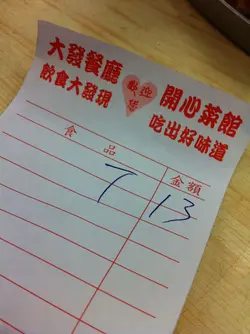 大發餐廳
飲食大發現
歡迎
開心菜館
吃出好味道
食品 金額
7 13